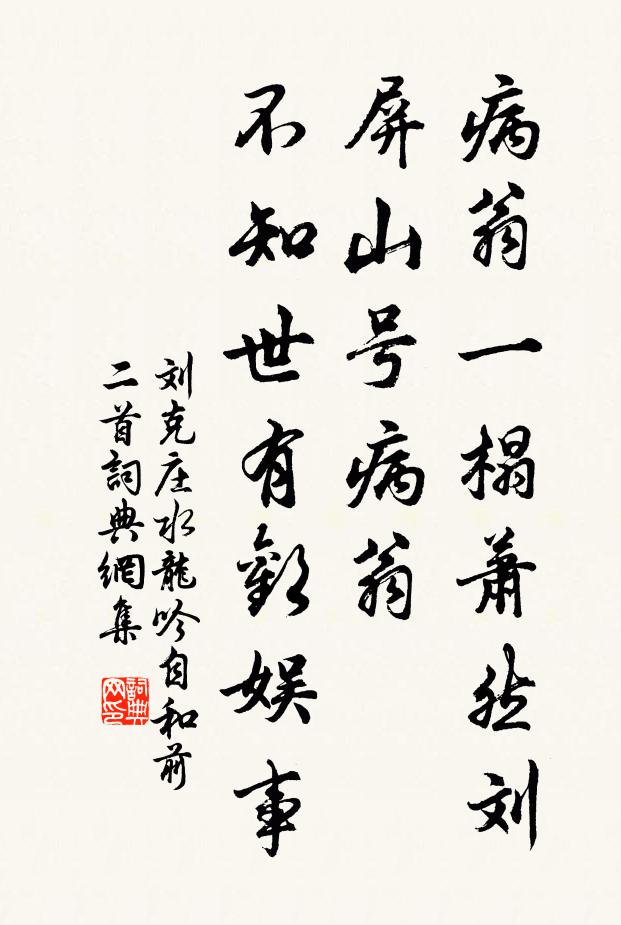 病翁一榻萧然刘
屏山号病翁
不知世有歡娱事
刘克庄水龍吟自和前
二首詞典網集
詞典
网印